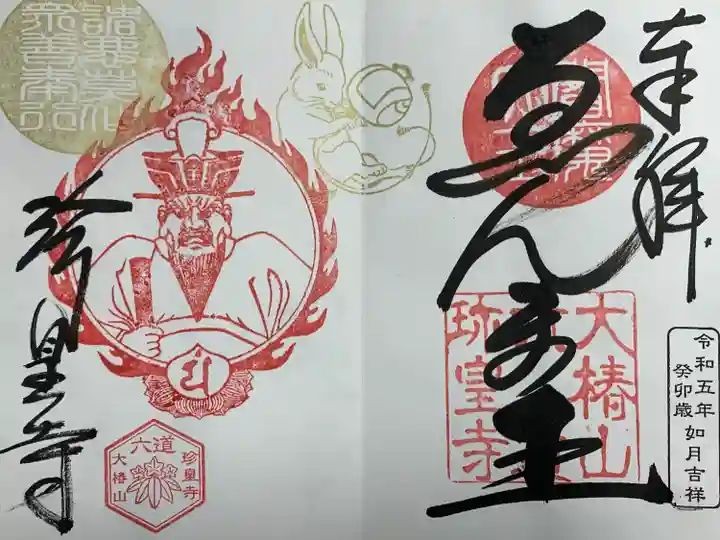 奉拝
ゑんま王
大椿山
珍皇寺
令和五年
癸卯歳
如月吉祥
諸悪莫作
衆善奉行
珍皇寺
六道
珍皇寺
大椿山